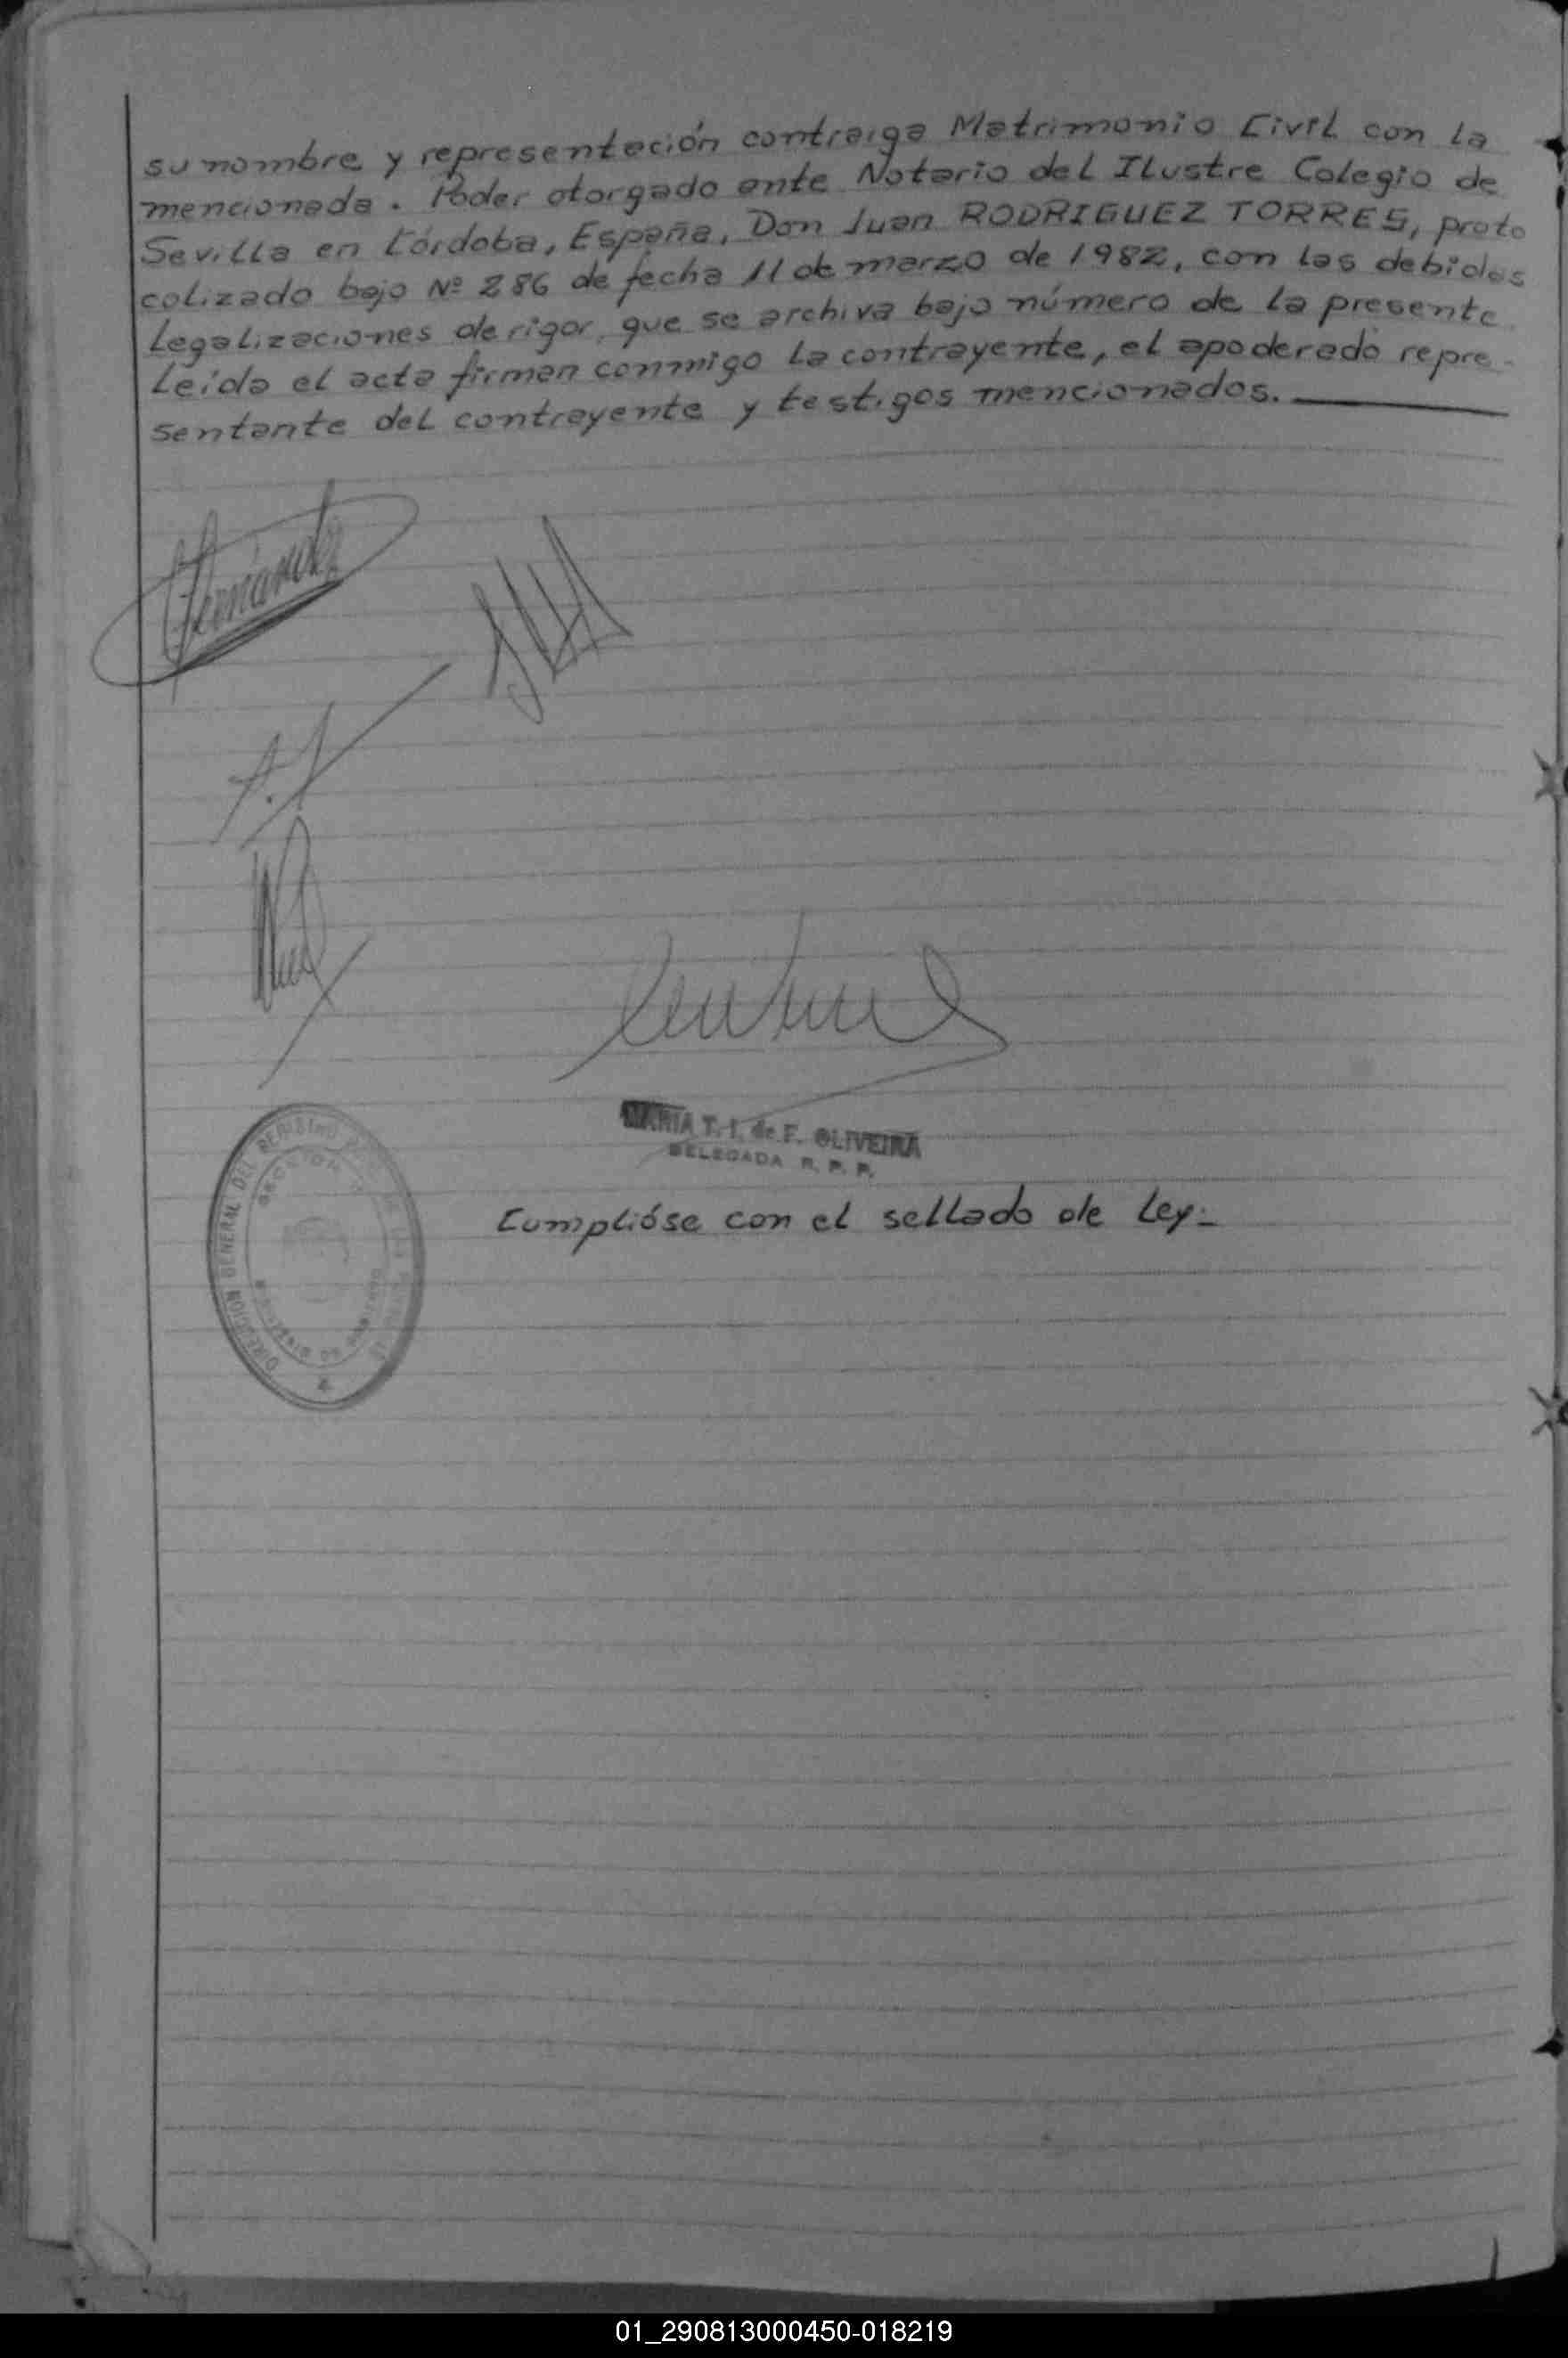 su nombre y representación contraiga Matrimonio Civil con la
mencionada. Poder otorgado ante Notario del Ilustre Colegio de
Sevilla en Córdoba, España, Don Juan RODRIGUEZ TORRES, proto
colizado bajo Nº 286 de fecha 11 de marzo de 1982, con las debidas
legalizaciones de rigor, que se archiva bajo número de la presente.
Leída el acta firman conmigo la contrayente, el apoderado repre-
sentante del contrayente y testigos mencionados.
Fernández
MARIA T. I. de F. OLIVEIRA
DELEGADA R. P. P.
DIRECCION GENERAL DEL REGISTRO
Cumplióse con el sellado de Ley.-
01_290813000450-018219